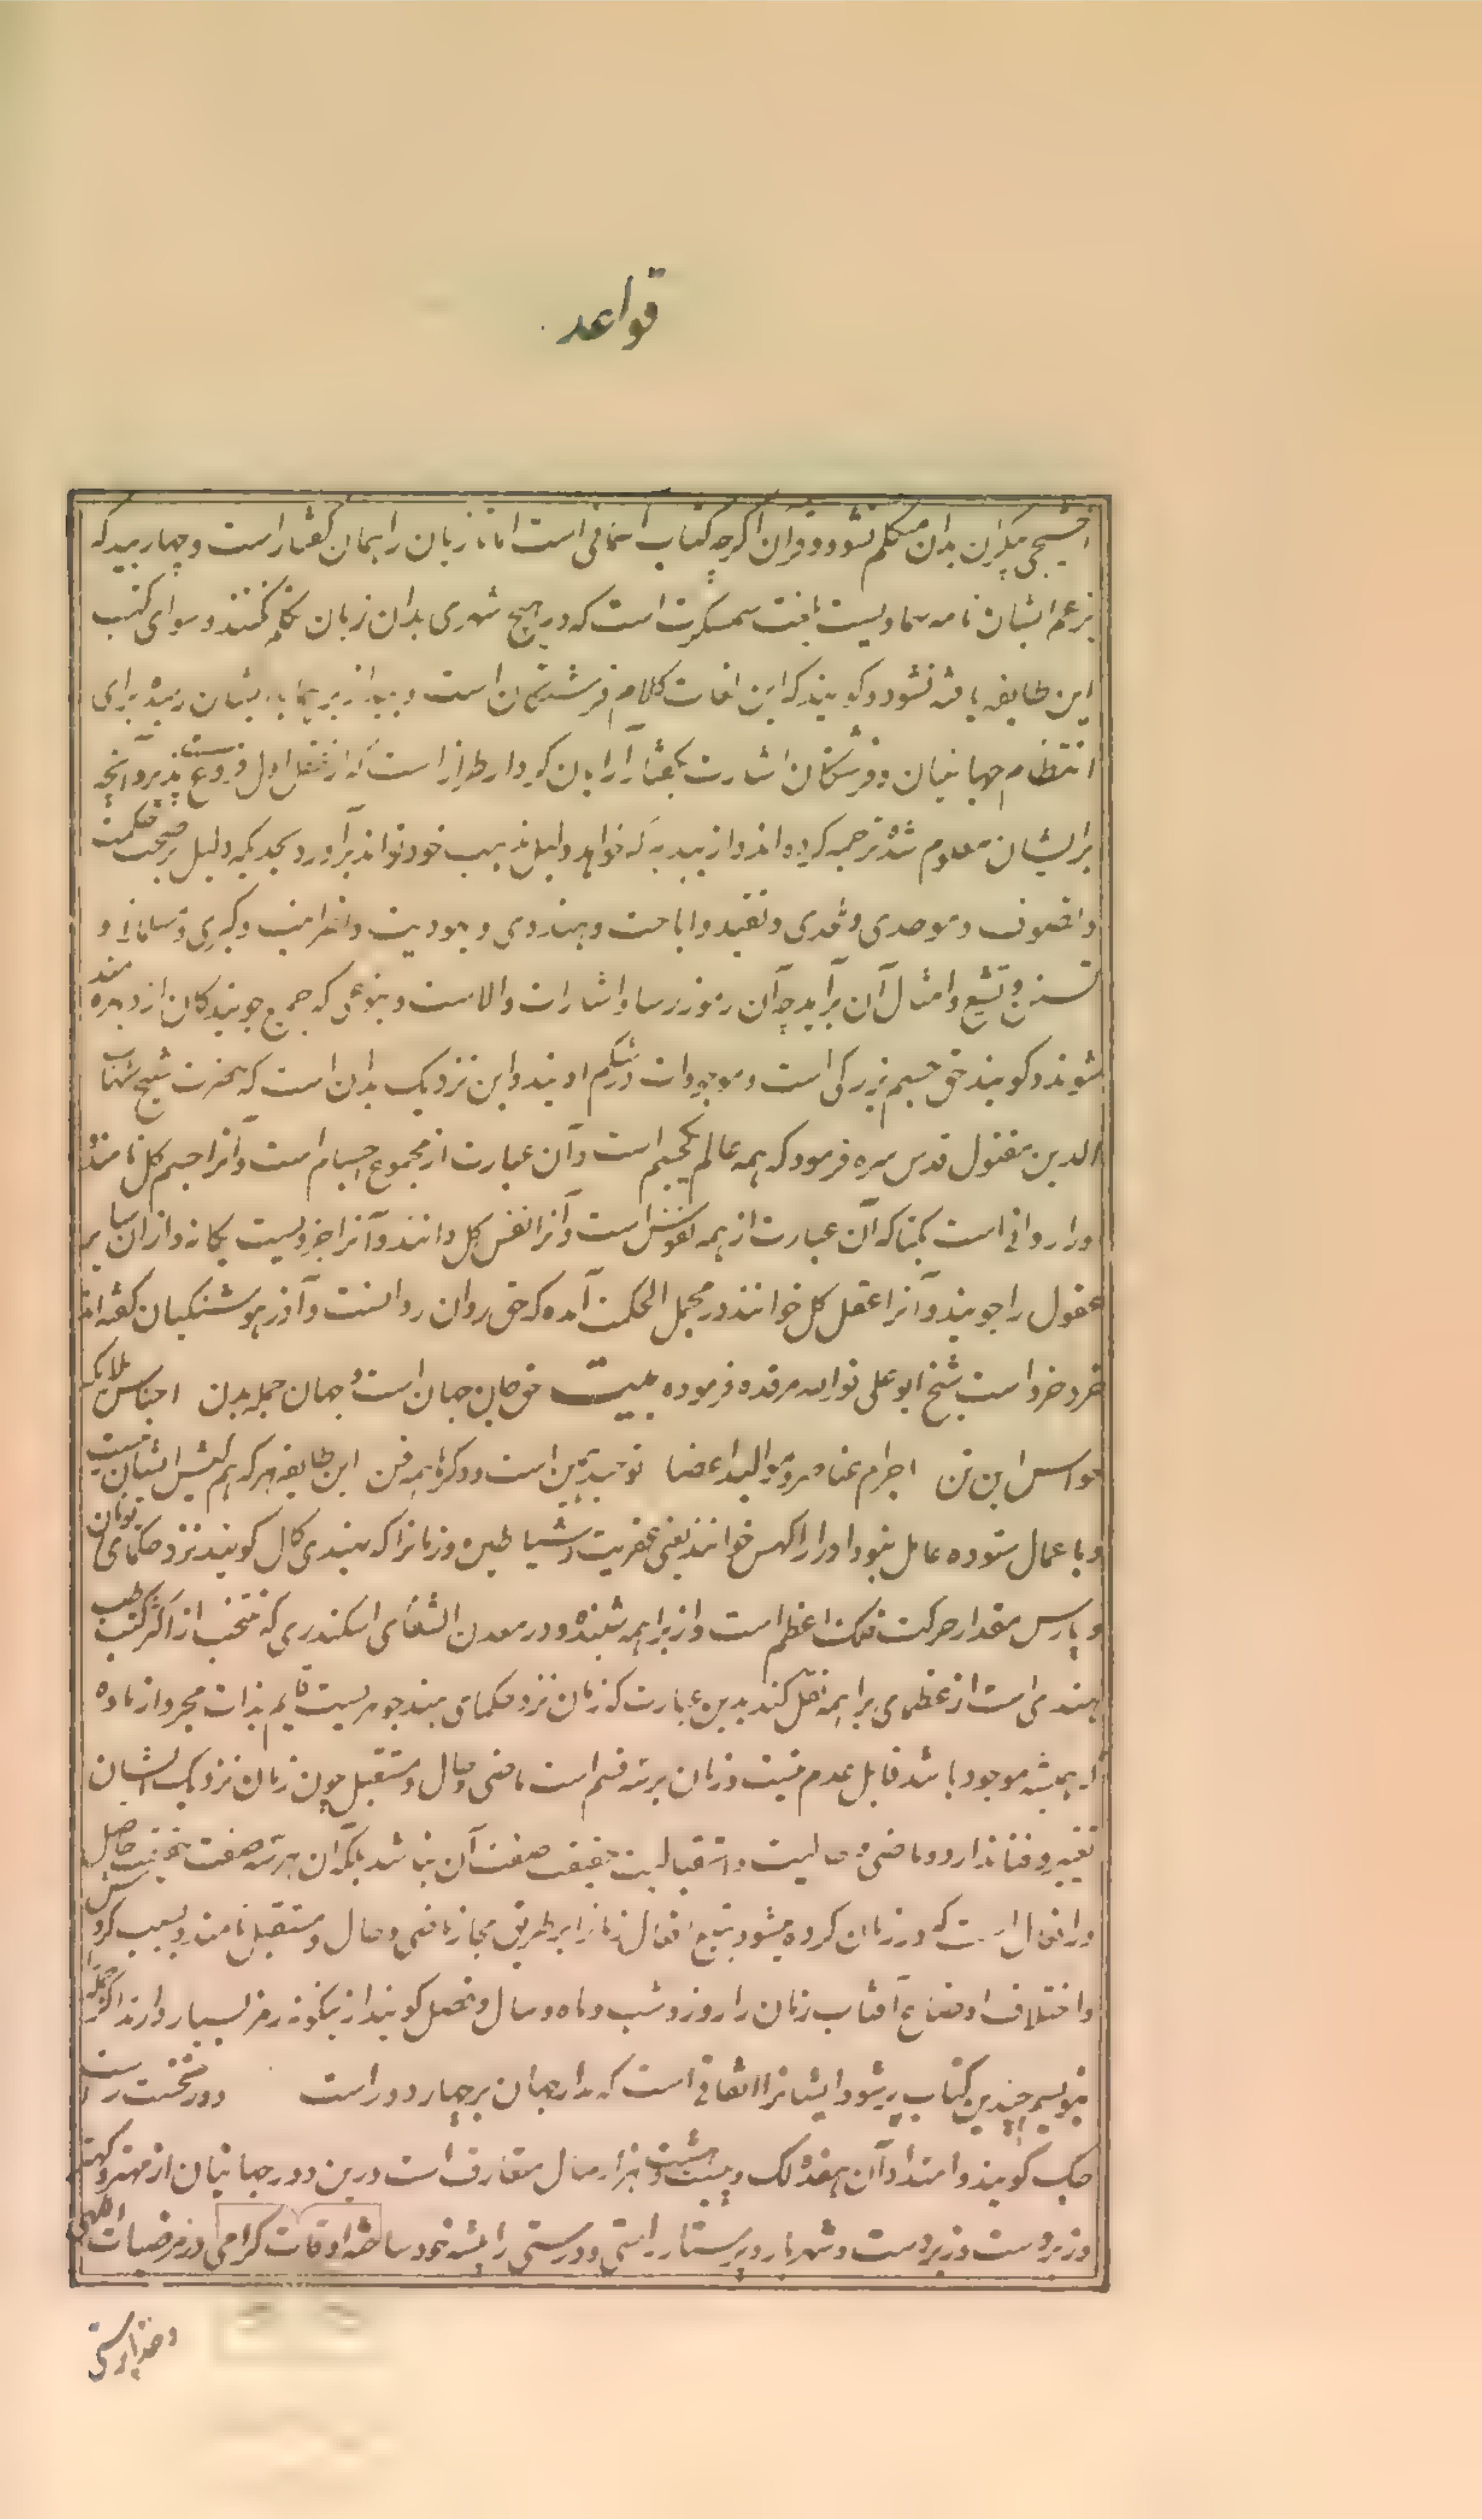 قواعد
اخشیجی پیکران بدان متکلم نشود و قران اگرچه کتاب آسمانی است اما تازیان را همان گفتار است و چهار بید که
بزعم ایشان نامه سماویست بلغت سمسکرت است که در هیچ شهری بدان زبان تکلم نکنند و سوای کتب
این طایفه یافته نشود و گویند که این لغات کلام فرشتگان است و بید از برهما بدیشان رسیده برای
انتظام جهانیان و فرشتگان اشارت بگفتار آرایان کردار طراز است که از عقل اول فروغ پذیرد آنچه
بر ایشان معلوم شد ترجمه کرده اند و از بید هر که خواهد دلیل مذهب خود تواند برآورد بحدیکه دلیل بر صحت حکمت
و تصوف و موحدی و ملحدی و تقید و اباحت و هندوی و یهودیت و نصرانیت و گبری و مسلمانی و
تسنن و تشیع و امثال آن برآید چه آن رموز رسا و اشارات والاست و بنوعی که جمیع جویندگان از و بهره مند
شوند و گویند حق جسم بزرگی است و موجودات در شکم اویند و این نزدیک بدان است که حضرت شیخ شهاب
الدین مقتول قدس سره فرمود که همه عالم یکجسم است و آن عبارت از مجموع اجسام است و آنرا جسم کل نامند
و را روانی است یکتا که آن عبارت از همه نفوس است و آنرا نفس کل دانند و آنرا خردیست یگانه و از ان سایر
عقول را جویند و آنرا عقل کل خوانند در مجمل الحکمت آمده که حق روان روانست و آذر هوشنگیان گفته اند
خرد خرد است شیخ ابو علی نور الله مرقده فرموده بیت حق جان جهان است و جهان جمله بدن اجناس ملایک
حواس این تن اجرام عناصر و موالید اعضا توحید همین است و دگرها همه فن این طایفه هر که هم کیش ایشان نیست
و با عمال ستوده عامل نبود او را راکهس خوانند یعنی عفریت و شیاطین و زمانرا که هندی کال گویند نزد حکمای یونان
و پارس مقدار حرکت فلک اعظم است و از براهمه شنیده و در معدن الشفای اسکندری که منتخب از اکثر کتب طب
هندی است از عظمای براهمه نقل کند بدین عبارت که زمان نزد حکمای هند جوهریست قایم بذات مجرد از ماده
که همیشه موجود باشد قابل عدم نیست و زمان بر سه قسم است ماضی و حال و مستقبل چون زمان نزدیک ایشان
تغیر و فنا ندارد و ماضی و حالیت و استقبالیت حقیقت صفت آن نباشد بلکه آن هر سه صفت حقیقت حاصل
و را افعال است که در زمان کرده میشود بتبع افعال زمانرا بر طریق مجاز ماضی و حال و مستقبل نامند و بسبب گردش
و اختلاف اوضاع آفتاب زمان را روز و شب و ماه و سال و فصل گویند ازینگونه رمز بسیار دارند اگر جمله را
بنویسم چندین کتاب پر شود ایشانرا اتفاق است که مدار جهان بر چهار دور است دور نخست را ست
جک گویند و امتداد آن هفده لک و بیست و هشت هزار سال متعارف است درین دور جهانیان از مهتر و کهتر
و زبردست و زیردست و شهریار و پرستار راستی و درستی را پیشه خود ساخته اوقات گرامی در مرضیات الهی
و خداپرستی